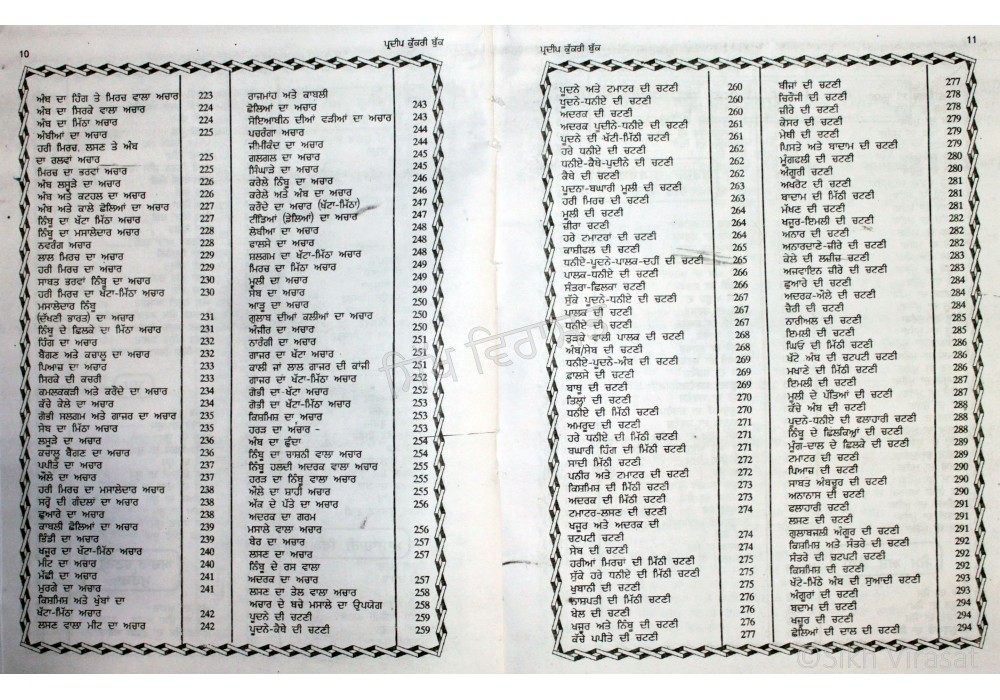 10
ਪ੍ਰਦੀਪ ਕੁੱਕਰੀ ਬੁੱਕ
ਅੰਬ ਦਾ ਹਿੰਗ ਤੇ ਮਿਰਚ ਵਾਲਾ ਅਚਾਰ 223
ਅੰਬ ਦਾ ਸਿਰਕੇ ਵਾਲਾ ਅਚਾਰ 224
ਅੰਬ ਦਾ ਮਿੱਠਾ ਅਚਾਰ 224
ਅੰਬੀਆਂ ਦਾ ਅਚਾਰ 225
ਹਰੀ ਮਿਰਚ, ਲਸਣ ਤੇ ਅੰਬ
ਦਾ ਰਲਵਾਂ ਅਚਾਰ 225
ਮਿਰਚ ਦਾ ਭਰਵਾਂ ਅਚਾਰ 225
ਅੰਬ ਲਸੂੜੇ ਦਾ ਅਚਾਰ 226
ਅੰਬ ਅਤੇ ਕਟਹਲ ਦਾ ਅਚਾਰ 226
ਅੰਬ ਅਤੇ ਕਾਲੇ ਛੋਲਿਆਂ ਦਾ ਅਚਾਰ 227
ਨਿੰਬੂ ਦਾ ਖੱਟਾ ਮਿੱਠਾ ਅਚਾਰ 227
ਨਿੰਬੂ ਦਾ ਮਸਾਲੇਦਾਰ ਅਚਾਰ 228
ਨਵਰੰਗ ਅਚਾਰ 228
ਲਾਲ ਮਿਰਚ ਦਾ ਅਚਾਰ 229
ਹਰੀ ਮਿਰਚ ਦਾ ਅਚਾਰ 229
ਸਾਬਤ ਭਰਵਾਂ ਨਿੰਬੂ ਦਾ ਅਚਾਰ 230
ਹਰੀ ਮਿਰਚ ਦਾ ਖੱਟਾ-ਮਿੱਠਾ ਅਚਾਰ 230
ਮਸਾਲੇਦਾਰ ਨਿੰਬੂ
(ਦੱਖਣੀ ਭਾਰਤ) ਦਾ ਅਚਾਰ 231
ਨਿੰਬੂ ਦੇ ਛਿਲਕੇ ਦਾ ਮਿੱਠਾ ਅਚਾਰ 231
ਹਿੰਗ ਦਾ ਅਚਾਰ 232
ਬੈਂਗਣ ਅਤੇ ਕਚਾਲੂ ਦਾ ਅਚਾਰ 232
ਪਿਆਜ਼ ਦਾ ਅਚਾਰ 233
ਸਿਰਕੇ ਦੀ ਕਚਰੀ 233
ਕਮਲਕਕੜੀ ਅਤੇ ਕਰੌਂਦੇ ਦਾ ਅਚਾਰ 234
ਕੱਚੇ ਕੇਲੇ ਦਾ ਅਚਾਰ 234
ਗੋਭੀ ਸਲਗਮ ਅਤੇ ਗਾਜਰ ਦਾ ਅਚਾਰ 235
ਸੇਬ ਦਾ ਮਿੱਠਾ ਅਚਾਰ 235
ਲਸੂੜੇ ਦਾ ਅਚਾਰ 236
ਕਚਾਲੂ ਬੈਂਗਣ ਦਾ ਅਚਾਰ 236
ਪਪੀਤੇ ਦਾ ਅਚਾਰ 237
ਔਲੇ ਦਾ ਅਚਾਰ 237
ਹਰੀ ਮਿਰਚ ਦਾ ਮਸਾਲੇਦਾਰ ਅਚਾਰ 238
ਸਰ੍ਹੋਂ ਦੀ ਗੰਦਲਾਂ ਦਾ ਅਚਾਰ 238
ਛੁਆਰੇ ਦਾ ਅਚਾਰ 238
ਕਾਬਲੀ ਛੋਲਿਆਂ ਦਾ ਅਚਾਰ 239
ਭਿੰਡੀ ਦਾ ਅਚਾਰ 239
ਖਜੂਰ ਦਾ ਖੱਟਾ-ਮਿੱਠਾ ਅਚਾਰ 240
ਮੀਟ ਦਾ ਅਚਾਰ 240
ਮੱਛੀ ਦਾ ਅਚਾਰ 241
ਮੁਰਗੇ ਦਾ ਅਚਾਰ 241
ਕਿਸ਼ਮਿਸ਼ ਅਤੇ ਖੁੰਬਾਂ ਦਾ
ਖੱਟਾ-ਮਿੱਠਾ ਅਚਾਰ 242
ਲਸਣ ਵਾਲਾ ਮੀਟ ਦਾ ਅਚਾਰ 242
ਰਾਜਮਾਂਹ ਅਤੇ ਕਾਬਲੀ
ਛੋਲਿਆਂ ਦਾ ਅਚਾਰ 243
ਸੋਇਆਬੀਨ ਦੀਆਂ ਵੜੀਆਂ ਦਾ ਅਚਾਰ 243
ਪਚਰੰਗਾ ਅਚਾਰ 244
ਜੀਮੀਕੰਦ ਦਾ ਅਚਾਰ 244
ਗਲਗਲ ਦਾ ਅਚਾਰ 245
ਸਿੰਘਾੜੇ ਦਾ ਅਚਾਰ 245
ਕਰੇਲੇ ਨਿੰਬੂ ਦਾ ਅਚਾਰ 246
ਕਰੇਲੇ ਅਤੇ ਅੰਬ ਦਾ ਅਚਾਰ 246
ਕਰੌਂਦੇ ਦਾ ਅਚਾਰ (ਖੱਟਾ-ਮਿੱਠਾ) 247
ਟੀਂਡਿਆਂ (ਡੇਲਿਆਂ) ਦਾ ਅਚਾਰ 247
ਲੋਬੀਆ ਦਾ ਅਚਾਰ 248
ਫਾਲਸੇ ਦਾ ਅਚਾਰ 248
ਸ਼ਲਗਮ ਦਾ ਖੱਟਾ-ਮਿੱਠਾ ਅਚਾਰ 248
ਮਿਰਚ ਦਾ ਮਿੱਠਾ ਅਚਾਰ 249
ਮੂਲੀ ਦਾ ਅਚਾਰ 249
ਸੇਬ ਦਾ ਅਚਾਰ 249
ਆੜੂ ਦਾ ਅਚਾਰ 250
ਗੁਲਾਬ ਦੀਆਂ ਕਲੀਆਂ ਦਾ ਅਚਾਰ 250
ਅੰਜੀਰ ਦਾ ਅਚਾਰ 250
ਨਾਰੰਗੀ ਦਾ ਅਚਾਰ 251
ਗਾਜਰ ਦਾ ਖੱਟਾ ਅਚਾਰ 251
ਕਾਲੀ ਜਾਂ ਲਾਲ ਗਾਜਰ ਦੀ ਕਾਂਜੀ 251
ਗਾਜਰ ਦਾ ਖੱਟਾ-ਮਿੱਠਾ ਅਚਾਰ 252
ਗੋਭੀ ਦਾ-ਖੱਟਾ ਅਚਾਰ 252
ਗੋਭੀ ਦਾ ਖੱਟਾ-ਮਿੱਠਾ ਅਚਾਰ 253
ਕਿਸ਼ਮਿਸ਼ ਦਾ ਅਚਾਰ 253
ਹਰੜ ਦਾ ਅਚਾਰ 253
ਅੰਬ ਦਾ ਛੁੰਦਾ 254
ਨਿੰਬੂ ਦਾ ਚਾਸ਼ਨੀ ਵਾਲਾ ਅਚਾਰ 254
ਨਿੰਬੂ ਹਲਦੀ ਅਦਰਕ ਵਾਲਾ ਅਚਾਰ 255
ਹਰੜ ਦਾ ਨਿੰਬੂ ਵਾਲਾ ਅਚਾਰ 255
ਔਲੇ ਦਾ ਸ਼ਾਹੀ ਅਚਾਰ 255
ਅੱਕ ਦੇ ਪੱਤੇ ਦਾ ਅਚਾਰ 256
ਅਦਰਕ ਦਾ ਗਰਮ
ਮਸਾਲੇ ਵਾਲਾ ਅਚਾਰ 256
ਬੇਰ ਦਾ ਅਚਾਰ 257
ਲਸਣ ਦਾ ਅਚਾਰ 257
ਨਿੰਬੂ ਦੇ ਰਸ ਵਾਲਾ
ਅਦਰਕ ਦਾ ਅਚਾਰ 257
ਲਸਣ ਦਾ ਤੇਲ ਵਾਲਾ ਅਚਾਰ 258
ਅਚਾਰ ਦੇ ਬਚੇ ਮਸਾਲੇ ਦਾ ਉਪਯੋਗ 258
ਪੂਦਨੇ ਦੀ ਚਟਣੀ 259
ਪੂਦਨੇ-ਕੈਥੇ ਦੀ ਚਟਣੀ 259
ਪ੍ਰਦੀਪ ਕੁੱਕਰੀ ਬੁੱਕ
11
ਪੂਦਨੇ ਅਤੇ ਟਮਾਟਰ ਦੀ ਚਟਣੀ 260
ਪੂਦਨੇ-ਧਨੀਏ ਦੀ ਚਟਣੀ 260
ਅਦਰਕ ਦੀ ਚਟਣੀ 260
ਅਦਰਕ ਪੂਦੀਨੇ-ਧਨੀਏ ਦੀ ਚਟਣੀ 261
ਪੂਦਨੇ ਦੀ ਖੱਟੀ-ਮਿੱਠੀ ਚਟਣੀ 261
ਹਰੇ ਧਨੀਏ ਦੀ ਚਟਣੀ 262
ਧਨੀਏ-ਕੈਥੇ-ਪੂਦੀਨੇ ਦੀ ਚਟਣੀ 262
ਕੈਥੇ ਦੀ ਚਟਣੀ 262
ਪੂਦਨਾ-ਬਘਾਰੀ ਮੂਲੀ ਦੀ ਚਟਣੀ 263
ਹਰੀ ਮਿਰਚ ਦੀ ਚਟਣੀ 263
ਮੂਲੀ ਦੀ ਚਟਣੀ 264
ਜ਼ੀਰਾ ਦੀ ਚਟਣੀ 264
ਹਰੇ ਟਮਾਟਰਾਂ ਦੀ ਚਟਣੀ 264
ਕਾਸ਼ੀਫਲ ਦੀ ਚਟਣੀ 265
ਧਨੀਏ-ਪੂਦਨੇ-ਪਾਲਕ-ਦਹੀਂ ਦੀ ਚਟਣੀ 265
ਪਾਲਕ-ਧਨੀਏ ਦੀ ਚਟਣੀ 266
ਸੰਤਰਾ-ਛਿਲਕਾ ਚਟਣੀ 266
ਸੁੱਕੇ ਪੂਦਨੇ-ਧਨੀਏ ਦੀ ਚਟਣੀ 266
ਪਾਲਕ ਦੀ ਚਟਣੀ 267
ਧਨੀਏ ਦੀ ਚਟਣੀ 267
ਤੁੜਕੇ ਵਾਲੀ ਪਾਲਕ ਦੀ ਚਟਣੀ 268
ਅੰਬ/ਸੇਬ ਦੀ ਚਟਣੀ 268
ਧਨੀਏ-ਪੂਦਨੇ-ਅੰਬ ਦੀ ਚਟਣੀ 269
ਫ਼ਾਲਸੇ ਦੀ ਚਟਣੀ 269
ਬਾਥੂ ਦੀ ਚਟਣੀ 269
ਤਿਲ੍ਹਾਂ ਦੀ ਚਟਣੀ 270
ਧਨੀਏ ਦੀ ਮਿੱਠੀ ਚਟਣੀ 270
ਅਮਰੂਦ ਦੀ ਚਟਣੀ 271
ਹਰੇ ਧਨੀਏ ਦੀ ਮਿੱਠੀ ਚਟਣੀ 271
ਬਘਾਰੀ ਹਿੰਗ ਦੀ ਮਿੱਠੀ ਚਟਣੀ 271
ਸਾਦੀ ਮਿੱਠੀ ਚਟਣੀ 272
ਪਨੀਰ ਅਤੇ ਟਮਾਟਰ ਦੀ ਚਟਣੀ 272
ਕਿਸ਼ਮਿਸ਼ ਦੀ ਮਿੱਠੀ ਚਟਣੀ 273
ਅਦਰਕ ਦੀ ਮਿੱਠੀ ਚਟਣੀ 273
ਟਮਾਟਰ-ਲਸਣ ਦੀ ਚਟਣੀ 274
ਖਜੂਰ ਅਤੇ ਅਦਰਕ ਦੀ
ਚਟਪਟੀ ਚਟਣੀ 274
ਸੇਬ ਦੀ ਚਟਣੀ 274
ਹਰੀਆਂ ਮਿਰਚਾਂ ਦੀ ਮਿੱਠੀ ਚਟਣੀ 275
ਸੁੱਕੇ ਹਰੇ ਧਨੀਏ ਦੀ ਮਿੱਠੀ ਚਟਣੀ 275
ਖੁਬਾਨੀ ਦੀ ਚਟਣੀ 275
ਨਾਸ਼ਪਤੀ ਦੀ ਮਿੱਠੀ ਚਟਣੀ 276
ਖੇਲ ਦੀ ਚਟਣੀ 276
ਖਜੂਰ ਅਤੇ ਨਿੰਬੂ ਦੀ ਚਟਣੀ 276
ਕੱਚੇ ਪਪੀਤੇ ਦੀ ਚਟਣੀ 277
ਬੀਜਾਂ ਦੀ ਚਟਣੀ 277
ਚਿਰੌਂਜੀ ਦੀ ਚਟਣੀ 278
ਜ਼ੀਰੇ ਦੀ ਚਟਣੀ 278
ਕੇਸਰ ਦੀ ਚਟਣੀ 279
ਮੇਥੀ ਦੀ ਚਟਣੀ 279
ਪਿਸਤੇ ਅਤੇ ਬਾਦਾਮ ਦੀ ਚਟਣੀ 279
ਮੂੰਗਫਲੀ ਦੀ ਚਟਣੀ 280
ਅੰਗੂਰੀ ਚਟਣੀ 280
ਅਖਰੋਟ ਦੀ ਚਟਣੀ 281
ਬਾਦਾਮ ਦੀ ਮਿੱਠੀ ਚਟਣੀ 281
ਮੱਖਣ ਦੀ ਚਟਣੀ 281
ਖਜੂਰ-ਇਮਲੀ ਦੀ ਚਟਣੀ 282
ਅਨਾਰ ਦੀ ਚਟਣੀ 282
ਅਨਾਰਦਾਣੇ-ਜ਼ੀਰੇ ਦੀ ਚਟਣੀ 283
ਕੇਲੇ ਦੀ ਲਜ਼ੀਜ਼ ਚਟਣੀ 283
ਅਜਵਾਇਨ ਜ਼ੀਰੇ ਦੀ ਚਟਣੀ 284
ਛੁਆਰੇ ਦੀ ਚਟਣੀ 284
ਅਦਰਕ-ਔਲੇ ਦੀ ਚਟਣੀ 284
ਚੈਰੀ ਦੀ ਚਟਣੀ 284
ਨਾਰੀਅਲ ਦੀ ਚਟਣੀ 285
ਇਮਲੀ ਦੀ ਚਟਣੀ 285
ਘਿਓ ਦੀ ਮਿੱਠੀ ਚਟਣੀ 286
ਖੱਟੇ ਅੰਬ ਦੀ ਚਟਪਟੀ ਚਟਣੀ 286
ਮਖਾਣੇ ਦੀ ਮਿੱਠੀ ਚਟਣੀ 286
ਇਮਲੀ ਦੀ ਚਟਣੀ 287
ਮੂਲੀ ਦੇ ਪੱਤਿਆਂ ਦੀ ਚਟਣੀ 287
ਕੱਚੇ ਅੰਬ ਦੀ ਚਟਣੀ 288
ਪੂਦਨੇ-ਧਨੀਏ ਦੀ ਫਲਾਹਾਰੀ ਚਟਣੀ 288
ਨਿੰਬੂ ਦੇ ਛਿਲਕਿਆਂ ਦੀ ਚਟਣੀ 288
ਮੂੰਗ-ਦਾਲ ਦੇ ਛਿਲਕੇ ਦੀ ਚਟਣੀ 289
ਟਮਾਟਰ ਦੀ ਚਟਣੀ 289
ਪਿਆਜ਼ ਦੀ ਚਟਣੀ 290
ਸਾਬਤ ਅੰਬਚੂਰ ਦੀ ਚਟਣੀ 290
ਅਨਾਨਾਸ ਦੀ ਚਟਣੀ 290
ਫਲਾਹਾਰੀ ਚਟਣੀ 291
ਲਸਣ ਦੀ ਚਟਣੀ 291
ਗੁਲਾਬਜਲੀ ਅੰਗੂਰ ਦੀ ਚਟਣੀ 291
ਕਿਸ਼ਮਿਸ਼ ਅਤੇ ਸੰਤਰੇ ਦੀ ਚਟਣੀ 292
ਸੰਤਰੇ ਦੀ ਚਟਪਟੀ ਚਟਣੀ 292
ਕਿਸ਼ਮਿਸ਼ ਦੀ ਚਟਣੀ 292
ਖੱਟੇ-ਮਿੱਠੇ ਅੰਬ ਦੀ ਸੁਆਦੀ ਚਟਣੀ 293
ਅੰਗੂਰਾਂ ਦੀ ਚਟਣੀ 293
ਬਦਾਮ ਦੀ ਚਟਣੀ 294
ਖਜੂਰ ਦੀ ਚਟਣੀ 294
ਛੋਲਿਆਂ ਦੀ ਦਾਲ ਦੀ ਚਟਣੀ 294
ਸਿੱਖ ਵਿਰਾਸਤ
©Sikh Virasat